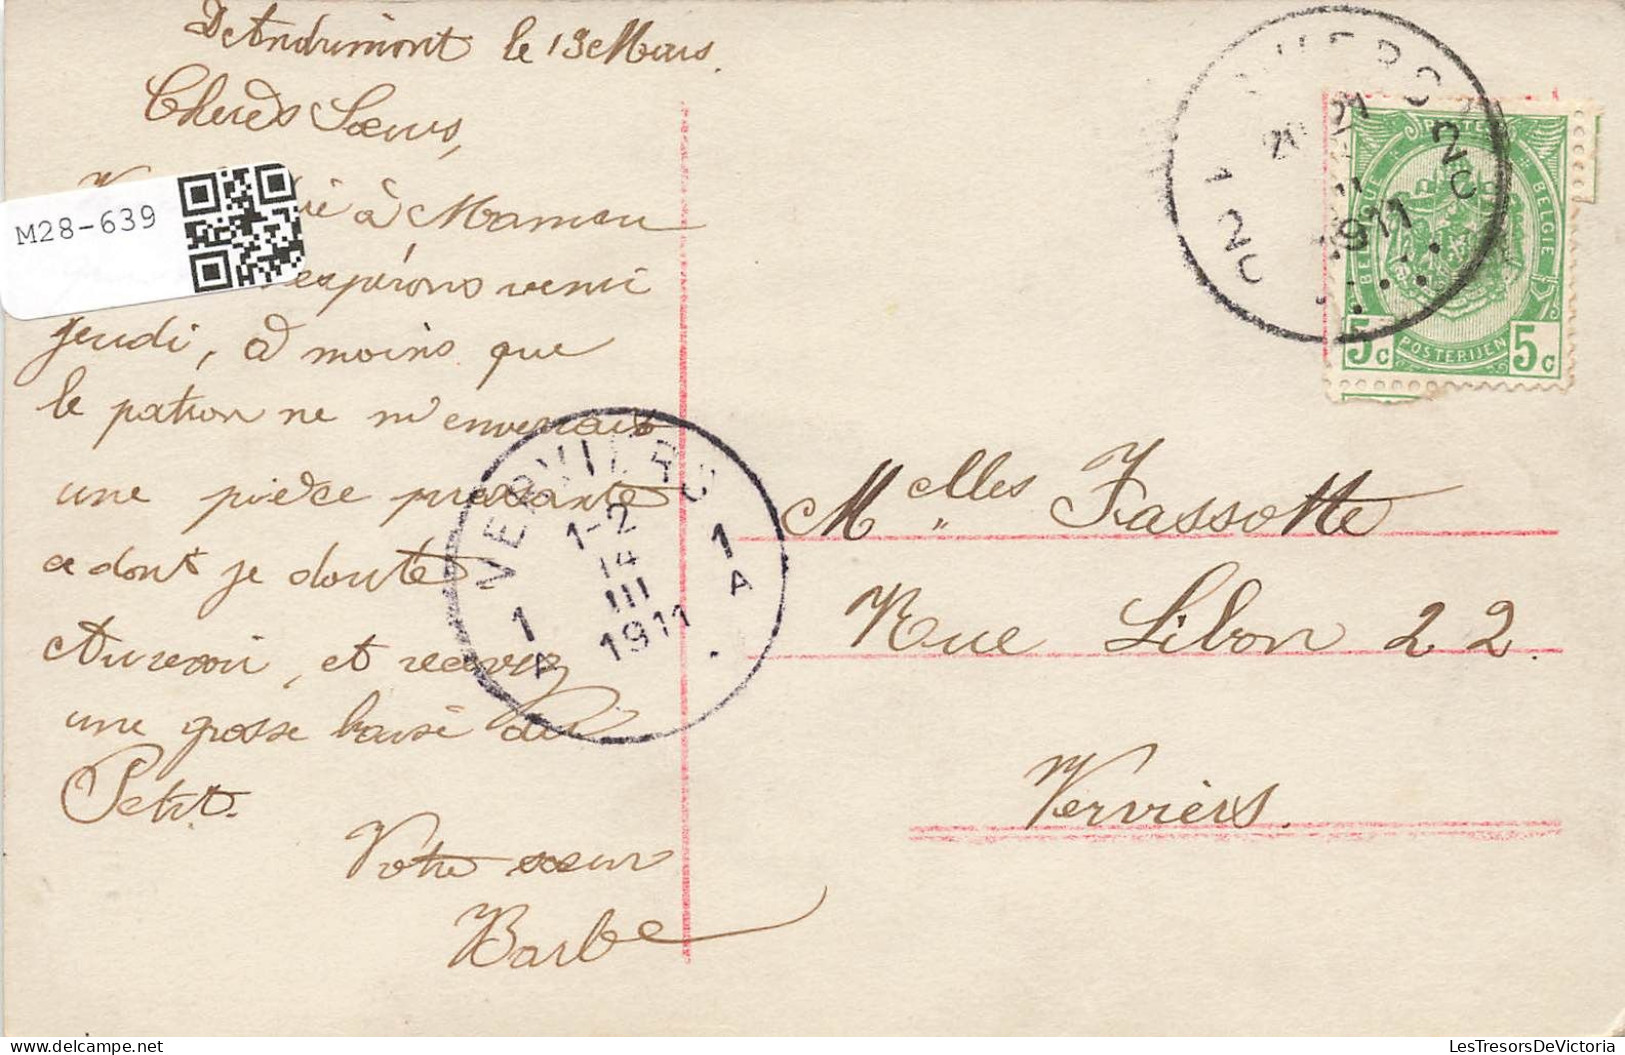 D'Andrimont le 13 Mars.
Chères Sœurs,
M28-639
à Maman
espérons venir
jeudi, à moins que
le patron ne m'enverrait
une pièce pressante
ce dont je doute
Au revoir, et recevez
une grosse baisé du
Petit.
Votre sœur
Barbe
VERVIERS
1-2
14
III
1911
1 A
1 A
VIERS
20-21
1911
2C
1 2C
POSTES
BELGIQUE
BELGIE
5c POSTERIJEN 5c
Melles Fassotte
Rue Libon 22.
Verviers.
LesTresorsDeVictoria